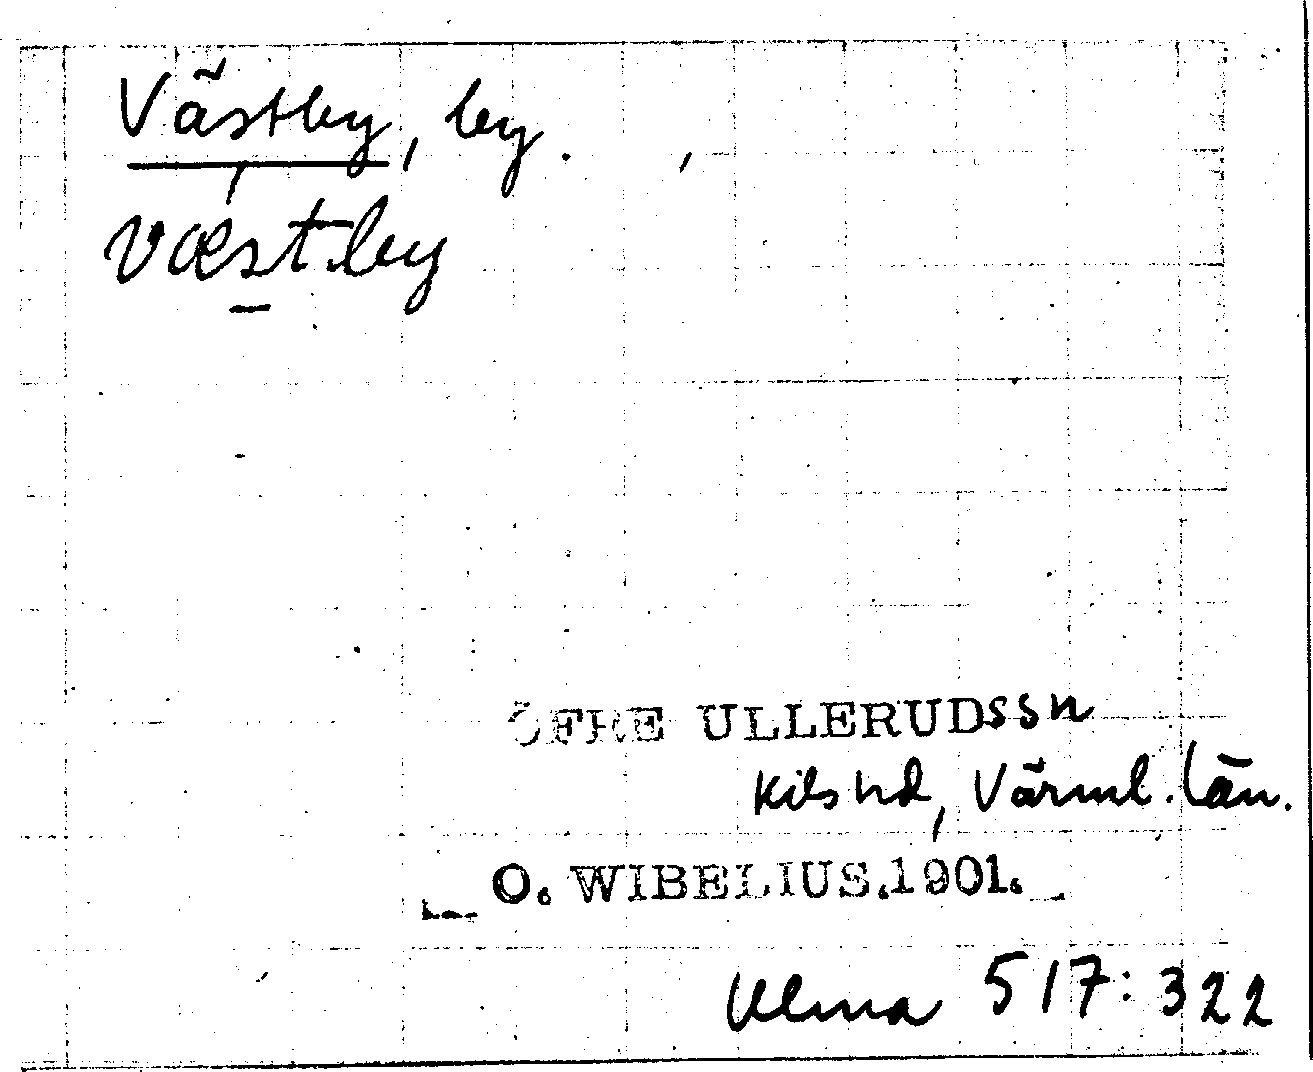 Västby, by.
væst.by
ÖFRE ULLERUDSsn
Kils hd, Värml. län.
O. WIBELIUS.1901.
Ulma 517:322